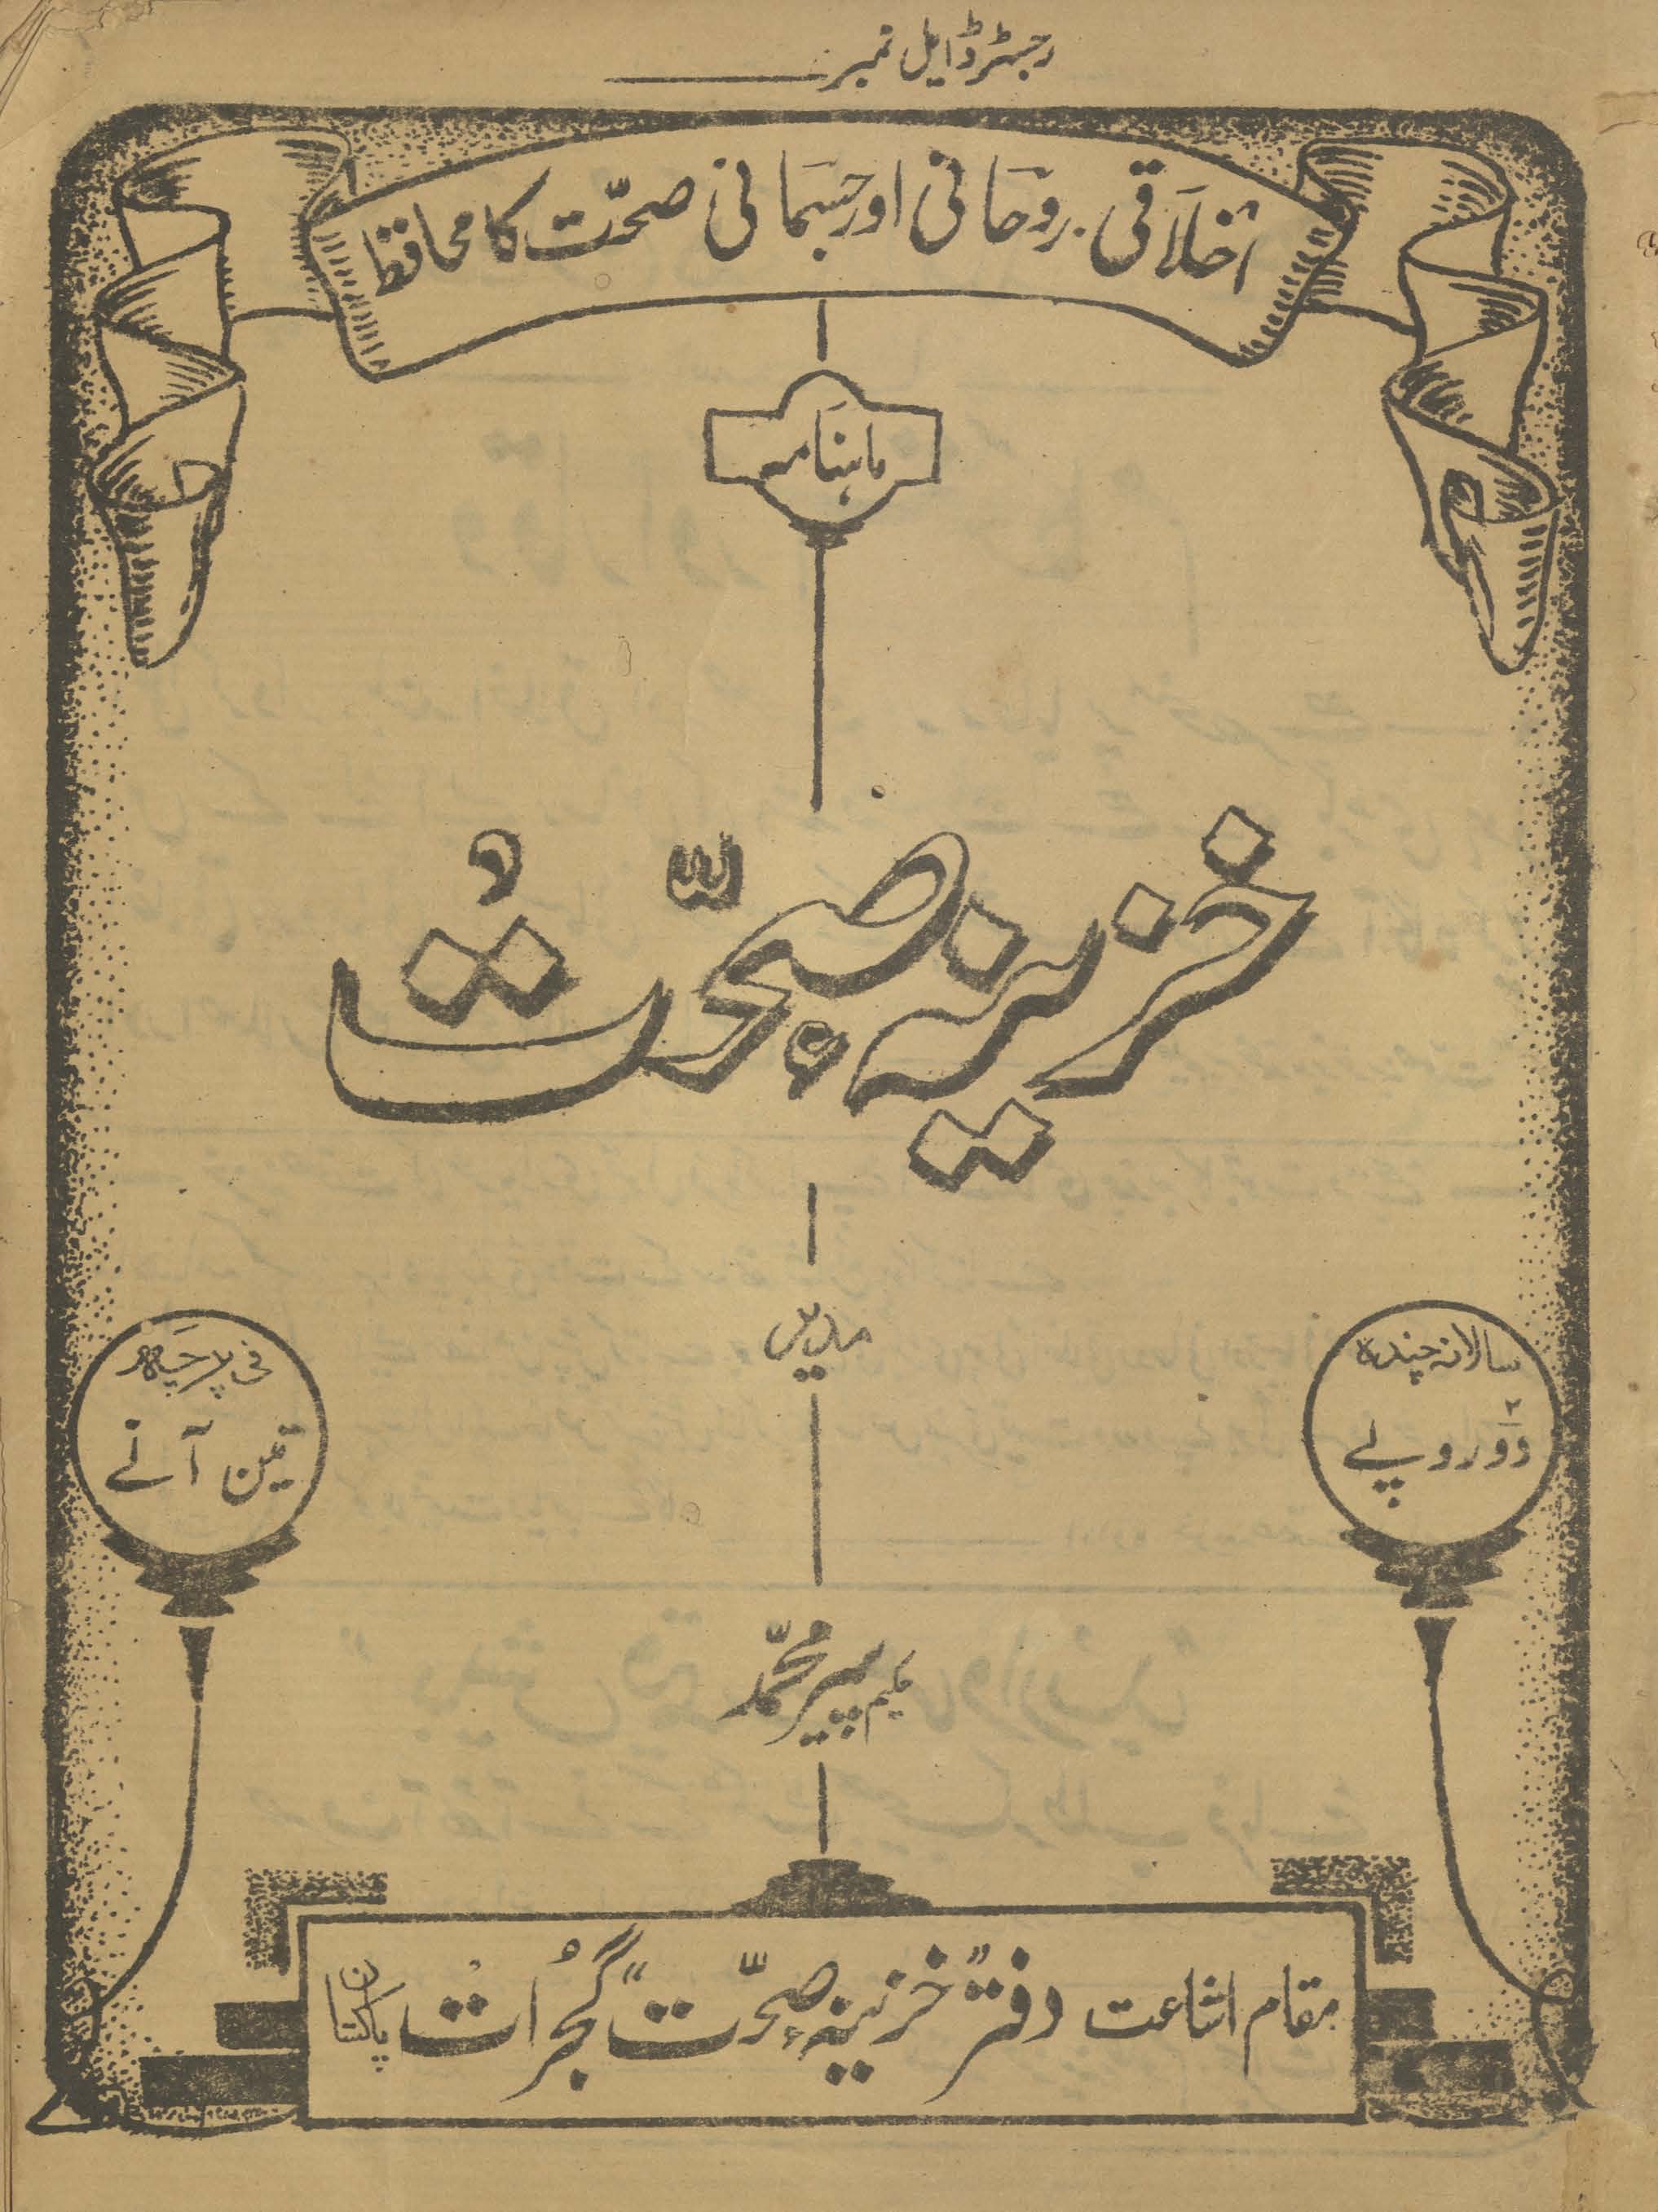 رجسٹرڈ ایل نمبر
اخلاقی۔ روحانی اور جسمانی صحت کا محافظ
ماہنامہ
خزینۂ صحت
سالانہ چندہ
دو روپے
فی پرچہ
تین آنے
مدیر
پیر محمد
مقام اشاعت دفتر "خزینۂ صحت" گجرات پاکستان